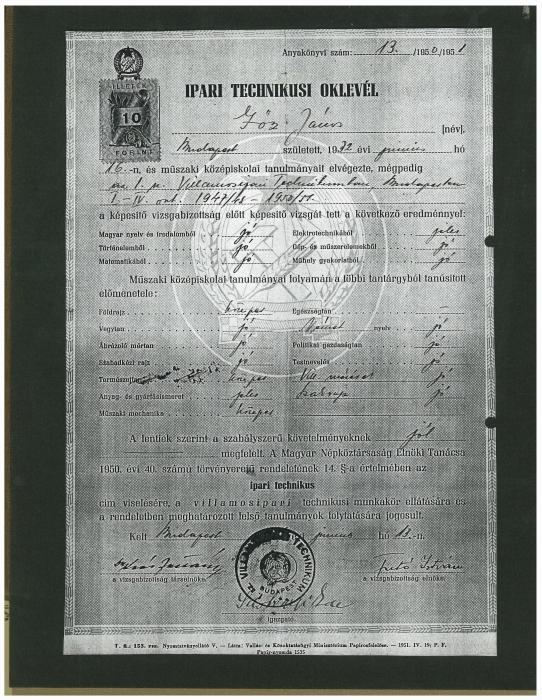 Anyakönyvi szám: 13. /1950/1951
ILLETÉK
10
FORINT
IPARI TECHNIKUSI OKLEVÉL
János [név],
Budapest született, 1932 évi junius hó
16.-n, és műszaki középiskolai tanulmányait elvégezte, mégpedig
Villamosipari Technikumban, Budapesten
I.-IV. oszt. 1947/48 - 1950/51.
a képesítő vizsgabizottság előtt képesítő vizsgát tett a következő eredménnyel:
Magyar nyelv és irodalomból jó Elektrotechnikából jeles
Történelemből jó Gép- és műszerelemekből jó
Matematikából jó Műhely gyakorlatból jó
Műszaki középiskolai tanulmányai folyamán a többi tantárgyból tanúsított
előmenetele:
Földrajz közepes Egészségtan —
Vegytan jó Német nyelv jó
Ábrázoló mértan jó Politikai gazdaságtan jó
Szabadkézi rajz jó Testnevelés jó
Természettan közepes Vill. jó
Anyag- és gyártásismeret jeles Szakrajz jó
Műszaki mechanika közepes
A fentiek szerint a szabályszerű követelményeknek jól
megfelelt. A Magyar Népköztársaság Elnöki Tanácsa
1950. évi 40. számú törvényerejű rendeletének 14. §-a értelmében az
ipari technikus
cím viselésére, a villamosipari technikusi munkakör ellátására és
a rendeletben meghatározott felső tanulmányok folytatására jogosult.
Kelt Budapest junius hó -n.
István
a vizsgabizottság társelnöke. a vizsgabizottság elnöke.
TECHNIKUM
BUDAPEST
igazgató.
T. ü.: 153. rsz. Nyomtatványellátó V. — Látta: Vallás- és Közoktatásügyi Minisztérium Papírosfelelőse. — 1951. IV. 19; P. F.
Papír-nyomda 1535